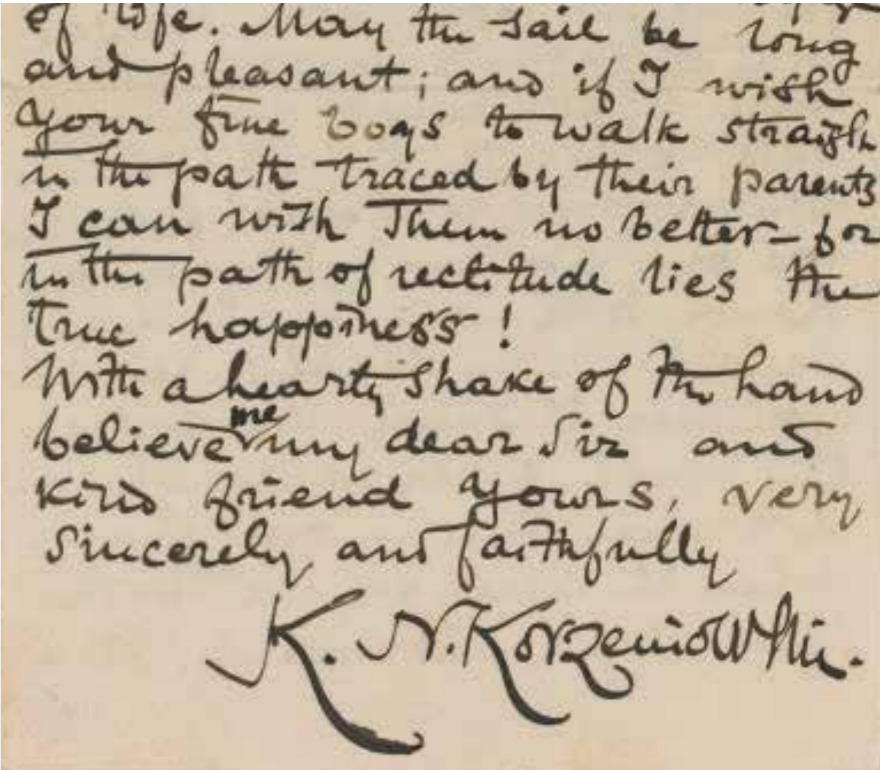 of life. May the sail be long
and pleasant; and if I wish
your fine boys to walk straigh
in the path traced by their parents
I can wish them no better – for
in the path of rectitude lies the
true happiness!
With a hearty shake of the hand
believe me my dear Sir and
kind friend yours, very
sincerely and faithfully
K. N. Korzeniowski.